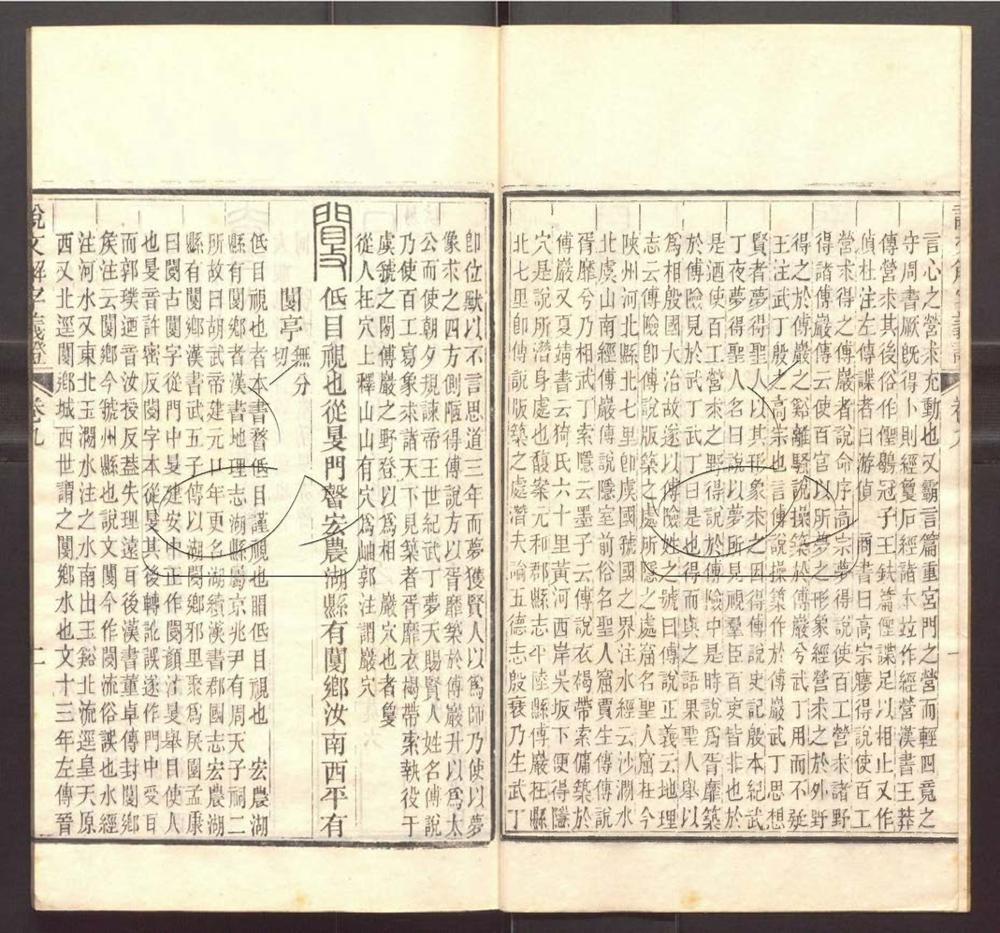 言心之營求充動也又霸言篇重宮門之營而輕四竟之
守周書厥旣得卜則經敻后經諸本竝作經營漢書王莽
傳營求其後俗作㑋鶡冠子王鈇篇㑋諜足以相止又作
偵杜注左傳諜者曰游偵　商書曰高宗㝱得說使百工
營求得之傅巖者說命序高宗夢得說使百工營求諸野
得諸傅巖傳云使百官以所夢之形象經營求之於外野
得之於傅巖之谿離騷說操築於傅巖兮武丁用而不疑
王注武丁殷之高宗也言傅說操築作於傅巖武丁思想
賢者夢得聖人以其形象求之因得傅說史記殷本紀武
丁夜夢得聖人名曰說以夢所見視羣臣百吏皆非也於
是迺使百工營求之野得說於傅險中是時說爲胥靡築
於傅險見於武丁武丁曰是也得而與之語果聖人舉以
爲相殷國大治故遂以傅險姓之號曰傅說正義云地理
志云傅險卽傅說版築之處所隱之處窟名聖人窟在今
陝州河北縣北七里卽虞國虢國之界注水經云沙澗水
北虞山南經傅巖傅說隱室前俗名聖人窟賈生傳傅說
胥靡兮乃相武丁索隱云墨子云傅說衣褐帶索傭築於
傅巖又夏靖書云猗氏六十里黃河西岸吳坂下便得隱
穴是說所潛身處也馥案元和郡縣志平陸縣傅巖在縣
北七里卽傅說版築之處潛夫論五德志殷衰乃生武丁
卽位默以不言思道三年而夢獲賢人以爲師乃使以夢
像求之四方側陋得傅說方以胥靡築於傅巖升以爲太
公而使朝夕規諫帝王世紀武丁夢天賜賢人姓名傅說
乃使百工寫象求諸天下見築者胥靡衣褐帶索執役于
虞虢之閒傅巖之野登以爲相　巖穴也者敻
從人在穴上釋山山有穴爲岫郭注謂巖穴
䦧　低目視也從𥄎門聲宏農湖縣有䦧鄉汝南西平有
䦧亭無分切
低目視也者本書瞀低目謹視也䀩低目視也　宏農湖
縣有䦧鄉者漢書地理志湖縣屬京兆尹有周天子祠二
所故曰胡武帝建元年更名湖續漢書郡國志宏農湖
縣有䦧鄉漢書武五子傳以湖閿鄉邪里聚爲戾園孟康
曰閿古䦧字從門中𥄎建安中正作閿顏注𥄎舉目使人
也𥄎音許密反閿字本從𥄎其後轉訛誤遂作門中受耳
而郭璞迺音汝授反蓋失理遠耳後漢書董卓傳封閿鄉
矦注云閿鄉今虢州縣也說文䦧今作閿流俗誤也水經
注河水又東北玉澗水注之水南出玉谿北流逕皇天原
西又北逕閿鄉城西世謂之閿鄉水也文十三年左傳晉
說文解字義證　卷九　二